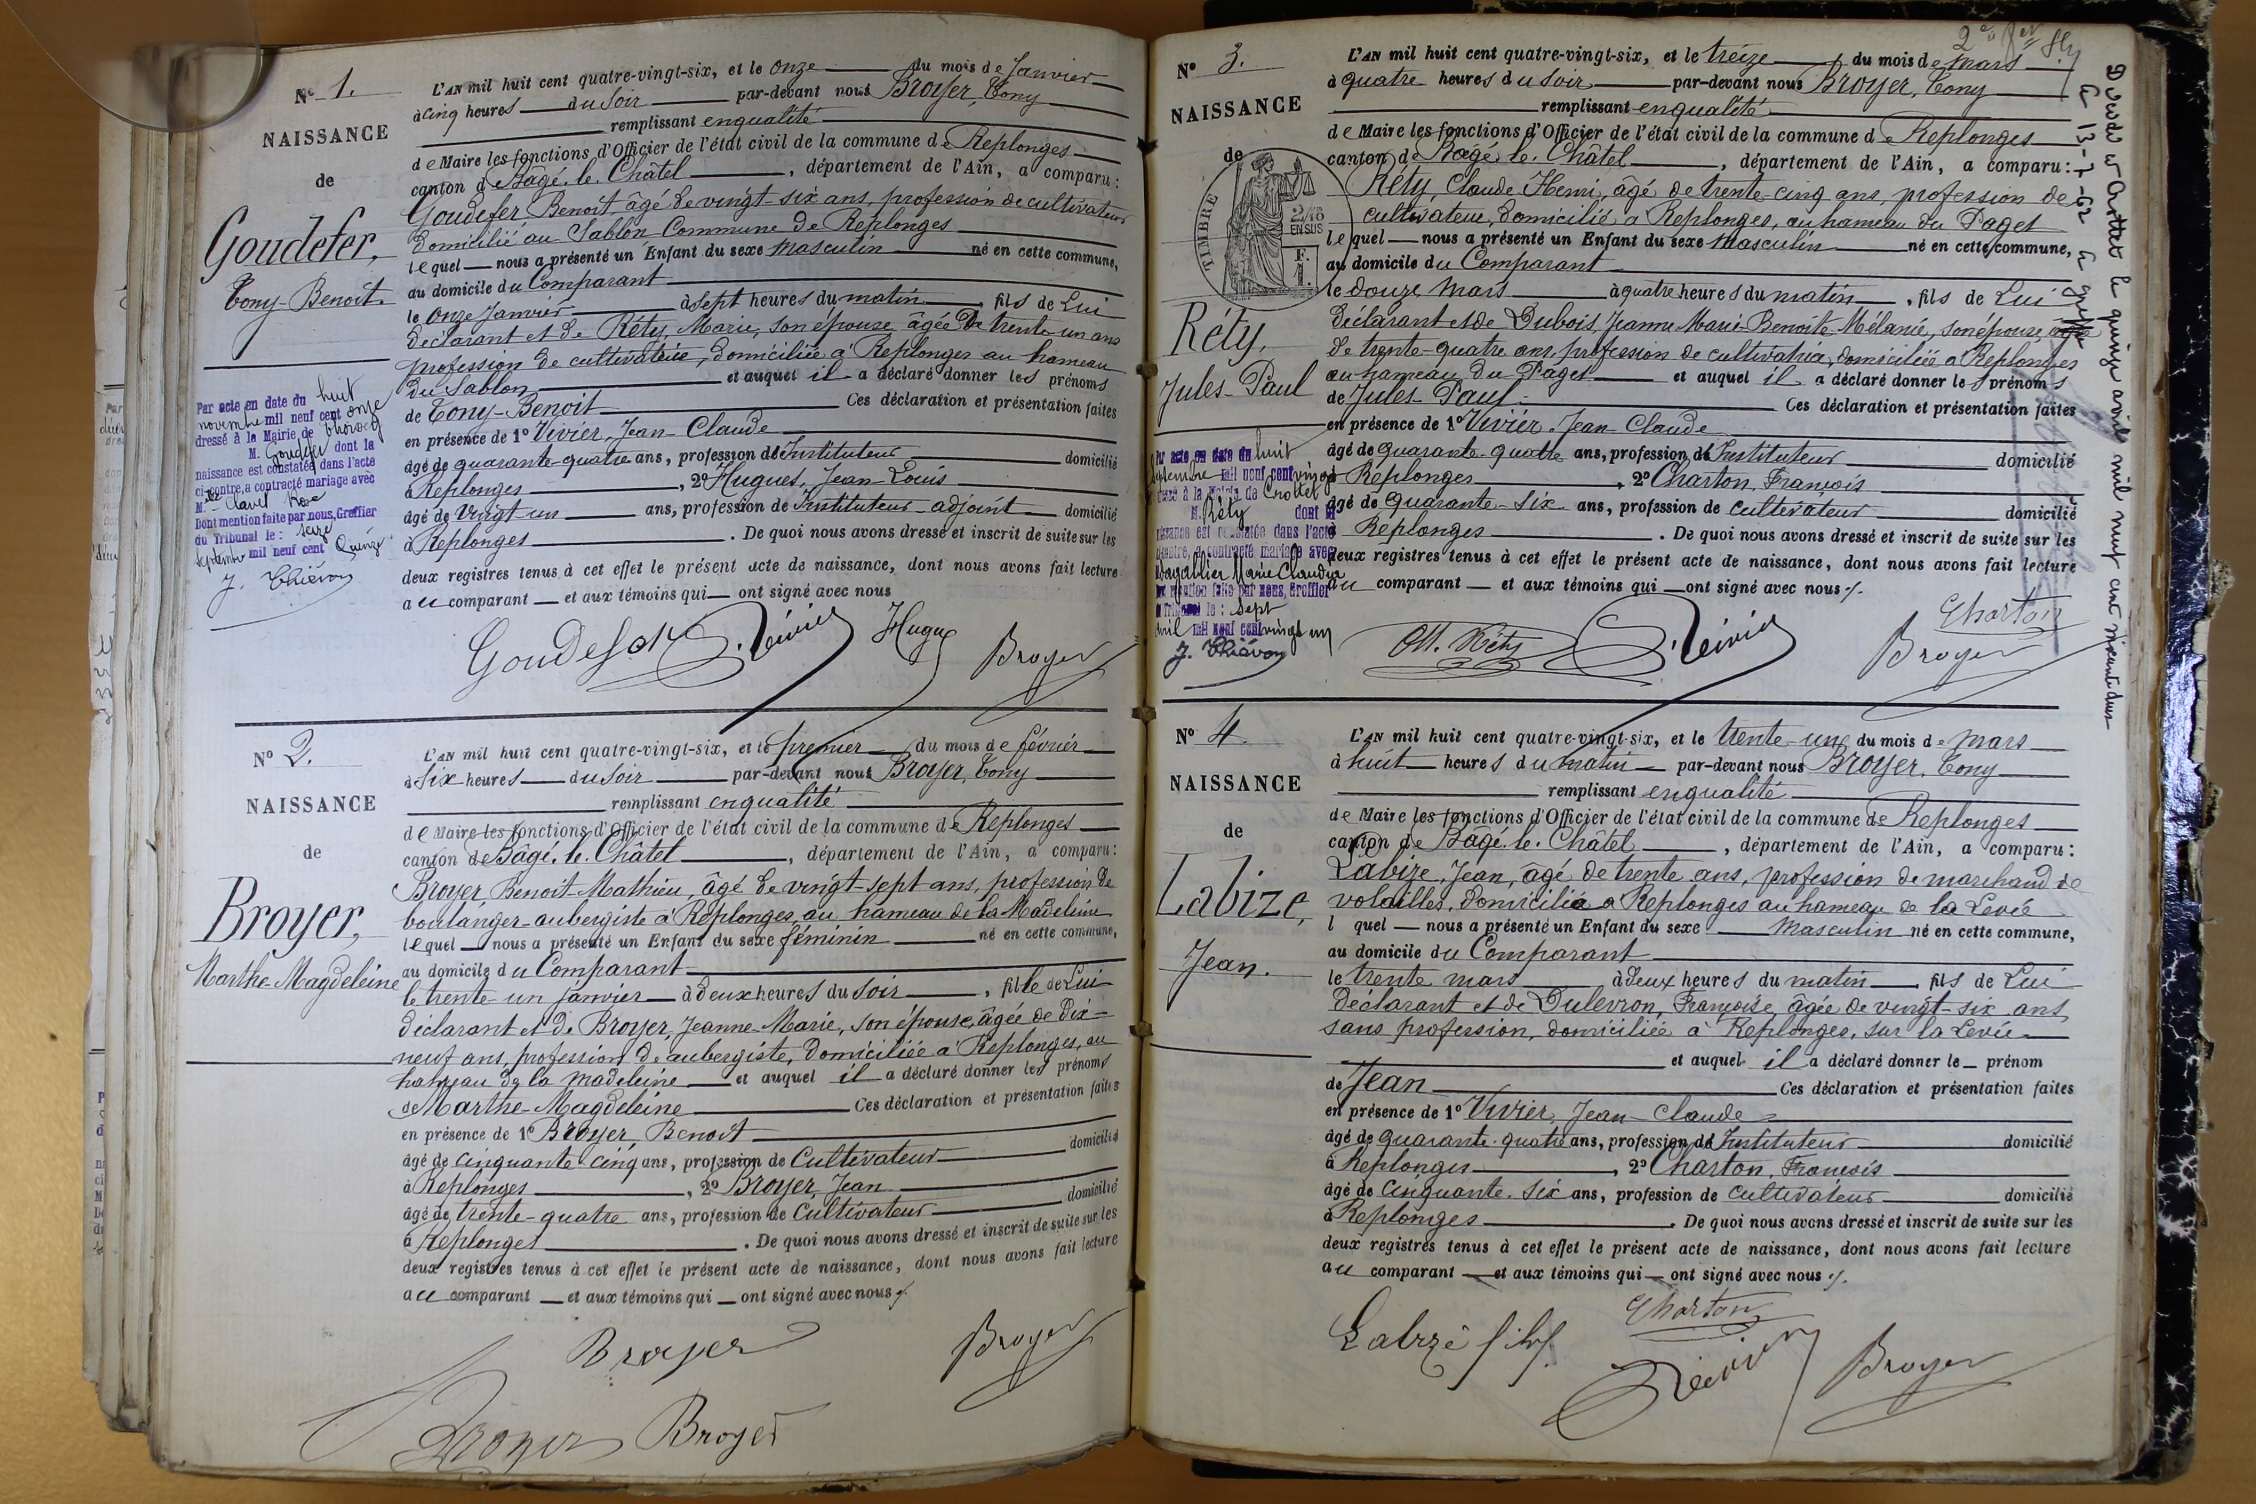 N° 1.
NAISSANCE
de
Goudefer,
Tony-Benoit.
Par acte en date du huit
novembre mil neuf cent onze
dressé à la Mairie de Thoissey
M. Goudefer dont la
naissance est constatée dans l'acte
ci-contre, a contracté mariage avec
M.elle Clavel Rose
Dont mention faite par nous, Greffier
du Tribunal le : seize
septembre mil neuf cent Quinze
J. Thiévon
L'AN mil huit cent quatre-vingt-six, et le onze du mois de Janvier
à cinq heures du Soir par-devant nous Broyer, Tony
remplissant en qualité
de Maire les fonctions d'Officier de l'état civil de la commune de Replonges
canton de Bâgé-le-Châtel, département de l'Ain, a comparu :
Goudefer Benoit, âgé de vingt-six ans, profession de cultivateur
domicilié au Sablon Commune de Replonges
lequel nous a présenté un Enfant du sexe masculin né en cette commune,
au domicile du Comparant
le onze Janvier à sept heures du matin, fils de Lui
déclarant et de Réty, Marie, son épouse, âgée de trente-un ans
profession de cultivatrice, domiciliée à Replonges au hameau
du Sablon et auquel il a déclaré donner les prénoms
de Tony-Benoit Ces déclaration et présentation faites
en présence de 1° Vivier, Jean-Claude
âgé de quarante-quatre ans, profession de Instituteur domicilié
à Replonges, 2° Hugues, Jean-Louis
âgé de vingt-un ans, profession de Instituteur-adjoint domicilié
à Replonges. De quoi nous avons dressé et inscrit de suite sur les
deux registres tenus à cet effet le présent acte de naissance, dont nous avons fait lecture
au comparant et aux témoins qui ont signé avec nous
Goudefer Vivier Hugues Broyer
N° 2.
NAISSANCE
de
Broyer,
Marthe-Magdeleine
L'AN mil huit cent quatre-vingt-six, et le premier du mois de février
à six heures du Soir par-devant nous Broyer, Tony
remplissant en qualité
de Maire les fonctions d'Officier de l'état civil de la commune de Replonges
canton de Bâgé-le-Châtel, département de l'Ain, a comparu :
Broyer, Benoit-Mathieu, âgé de vingt-sept ans, profession de
boulanger-aubergiste à Replonges, au hameau de la Madeleine
lequel nous a présenté un Enfant du sexe féminin né en cette commune,
au domicile du Comparant
le trente-un janvier à deux heures du soir, fille de Lui
déclarant et de Broyer, Jeanne-Marie, son épouse, âgée de dix-
neuf ans, profession de aubergiste, domiciliée à Replonges, au
hameau de la madeleine et auquel il a déclaré donner les prénoms
de Marthe-Magdeleine Ces déclaration et présentation faites
en présence de 1° Broyer, Benoit
âgé de cinquante-cinq ans, profession de Cultivateur domicilié
à Replonges, 2° Broyer, Jean
âgé de trente-quatre ans, profession de Cultivateur domicilié
à Replonges. De quoi nous avons dressé et inscrit de suite sur les
deux registres tenus à cet effet le présent acte de naissance, dont nous avons fait lecture
au comparant et aux témoins qui ont signé avec nous
Broyer Broyer
Broyer Broyer
N° 3.
NAISSANCE
de
TIMBRE
2/10
EN SUS
F.
1.
Réty,
Jules-Paul
Par acte en date du huit
septembre mil neuf cent vingt
dressé à la Mairie de Crottet
M. Réty dont la
naissance est constatée dans l'acte
ci-contre, a contracté mariage avec
Marie Claudia
Dont mention faite par nous, Greffier
du Tribunal le : Sept
avril mil neuf cent vingt un
J. Thiévon
L'AN mil huit cent quatre-vingt-six, et le treize du mois de mars
à quatre heures du soir par-devant nous Broyer, Tony
remplissant en qualité
de Maire les fonctions d'Officier de l'état civil de la commune de Replonges
canton de Bâgé-le-Châtel, département de l'Ain, a comparu :
Réty, Claude Henri, âgé de trente-cinq ans, profession de
cultivateur, domicilié à Replonges, au hameau du Paget
lequel nous a présenté un Enfant du sexe masculin né en cette commune,
au domicile du Comparant
le douze mars à quatre heures du matin, fils de Lui
déclarant et de Dubois, Jeanne Marie-Benoite-Mélanie, son épouse, âgée
de trente-quatre ans, profession de cultivatrice, domiciliée à Replonges
au hameau du Paget et auquel il a déclaré donner les prénoms
de Jules-Paul Ces déclaration et présentation faites
en présence de 1° Vivier, Jean-Claude
âgé de quarante-quatre ans, profession de Instituteur domicilié
à Replonges, 2° Charton, François
âgé de quarante-six ans, profession de cultivateur domicilié
à Replonges. De quoi nous avons dressé et inscrit de suite sur les
deux registres tenus à cet effet le présent acte de naissance, dont nous avons fait lecture
au comparant et aux témoins qui ont signé avec nous
Réty Vivier Charton Broyer
Décédé à Crottet le quinze avril mil neuf cent cinquante deux
N° 4.
NAISSANCE
de
Labize,
Jean.
L'AN mil huit cent quatre-vingt-six, et le trente-un du mois de mars
à huit heures du matin par-devant nous Broyer, Tony
remplissant en qualité
de Maire les fonctions d'Officier de l'état civil de la commune de Replonges
canton de Bâgé-le-Châtel, département de l'Ain, a comparu :
Labize, Jean, âgé de trente ans, profession de marchand de
volailles, domicilié à Replonges au hameau de la Levée
l quel nous a présenté un Enfant du sexe Masculin né en cette commune,
au domicile du Comparant
le trente mars à deux heures du matin, fils de Lui
déclarant et de Dulevron, Françoise, âgée de vingt-six ans
sans profession, domiciliée à Replonges, sur la Levée
et auquel il a déclaré donner le prénom
de Jean Ces déclaration et présentation faites
en présence de 1° Vivier, Jean-Claude
âgé de quarante-quatre ans, profession de Instituteur domicilié
à Replonges, 2° Charton, François
âgé de cinquante-six ans, profession de cultivateur domicilié
à Replonges. De quoi nous avons dressé et inscrit de suite sur les
deux registres tenus à cet effet le présent acte de naissance, dont nous avons fait lecture
au comparant et aux témoins qui ont signé avec nous
Charton
Labize fils Vivier Broyer